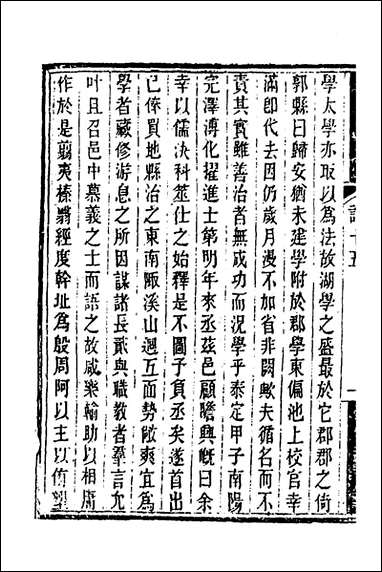 學太學亦取以為法故湖學之盛最於它郡郡之倚
郭縣曰歸安猶未建學附於郡學東偏池上校官幸
滿即代去因仍歲月漫不加省非闕歟夫循名而不
責其實雖善治者無成功而況學乎泰定甲子南陽
完澤溥化擢進士第明年來丞茲邑顧瞻興慨曰余
幸以儒決科筮仕之始釋是不圖子負丞矣遂首出
己俸買地縣治之東南陬溪山迴互面勢敞爽宜為
學者藏修游息之所因謀諸長貳與職教者羣言允
叶且召邑中慕義之士而語之故咸樂輸助以相厥
作於是翦夷榛翳經度幹址為殷周阿以主以侑聖